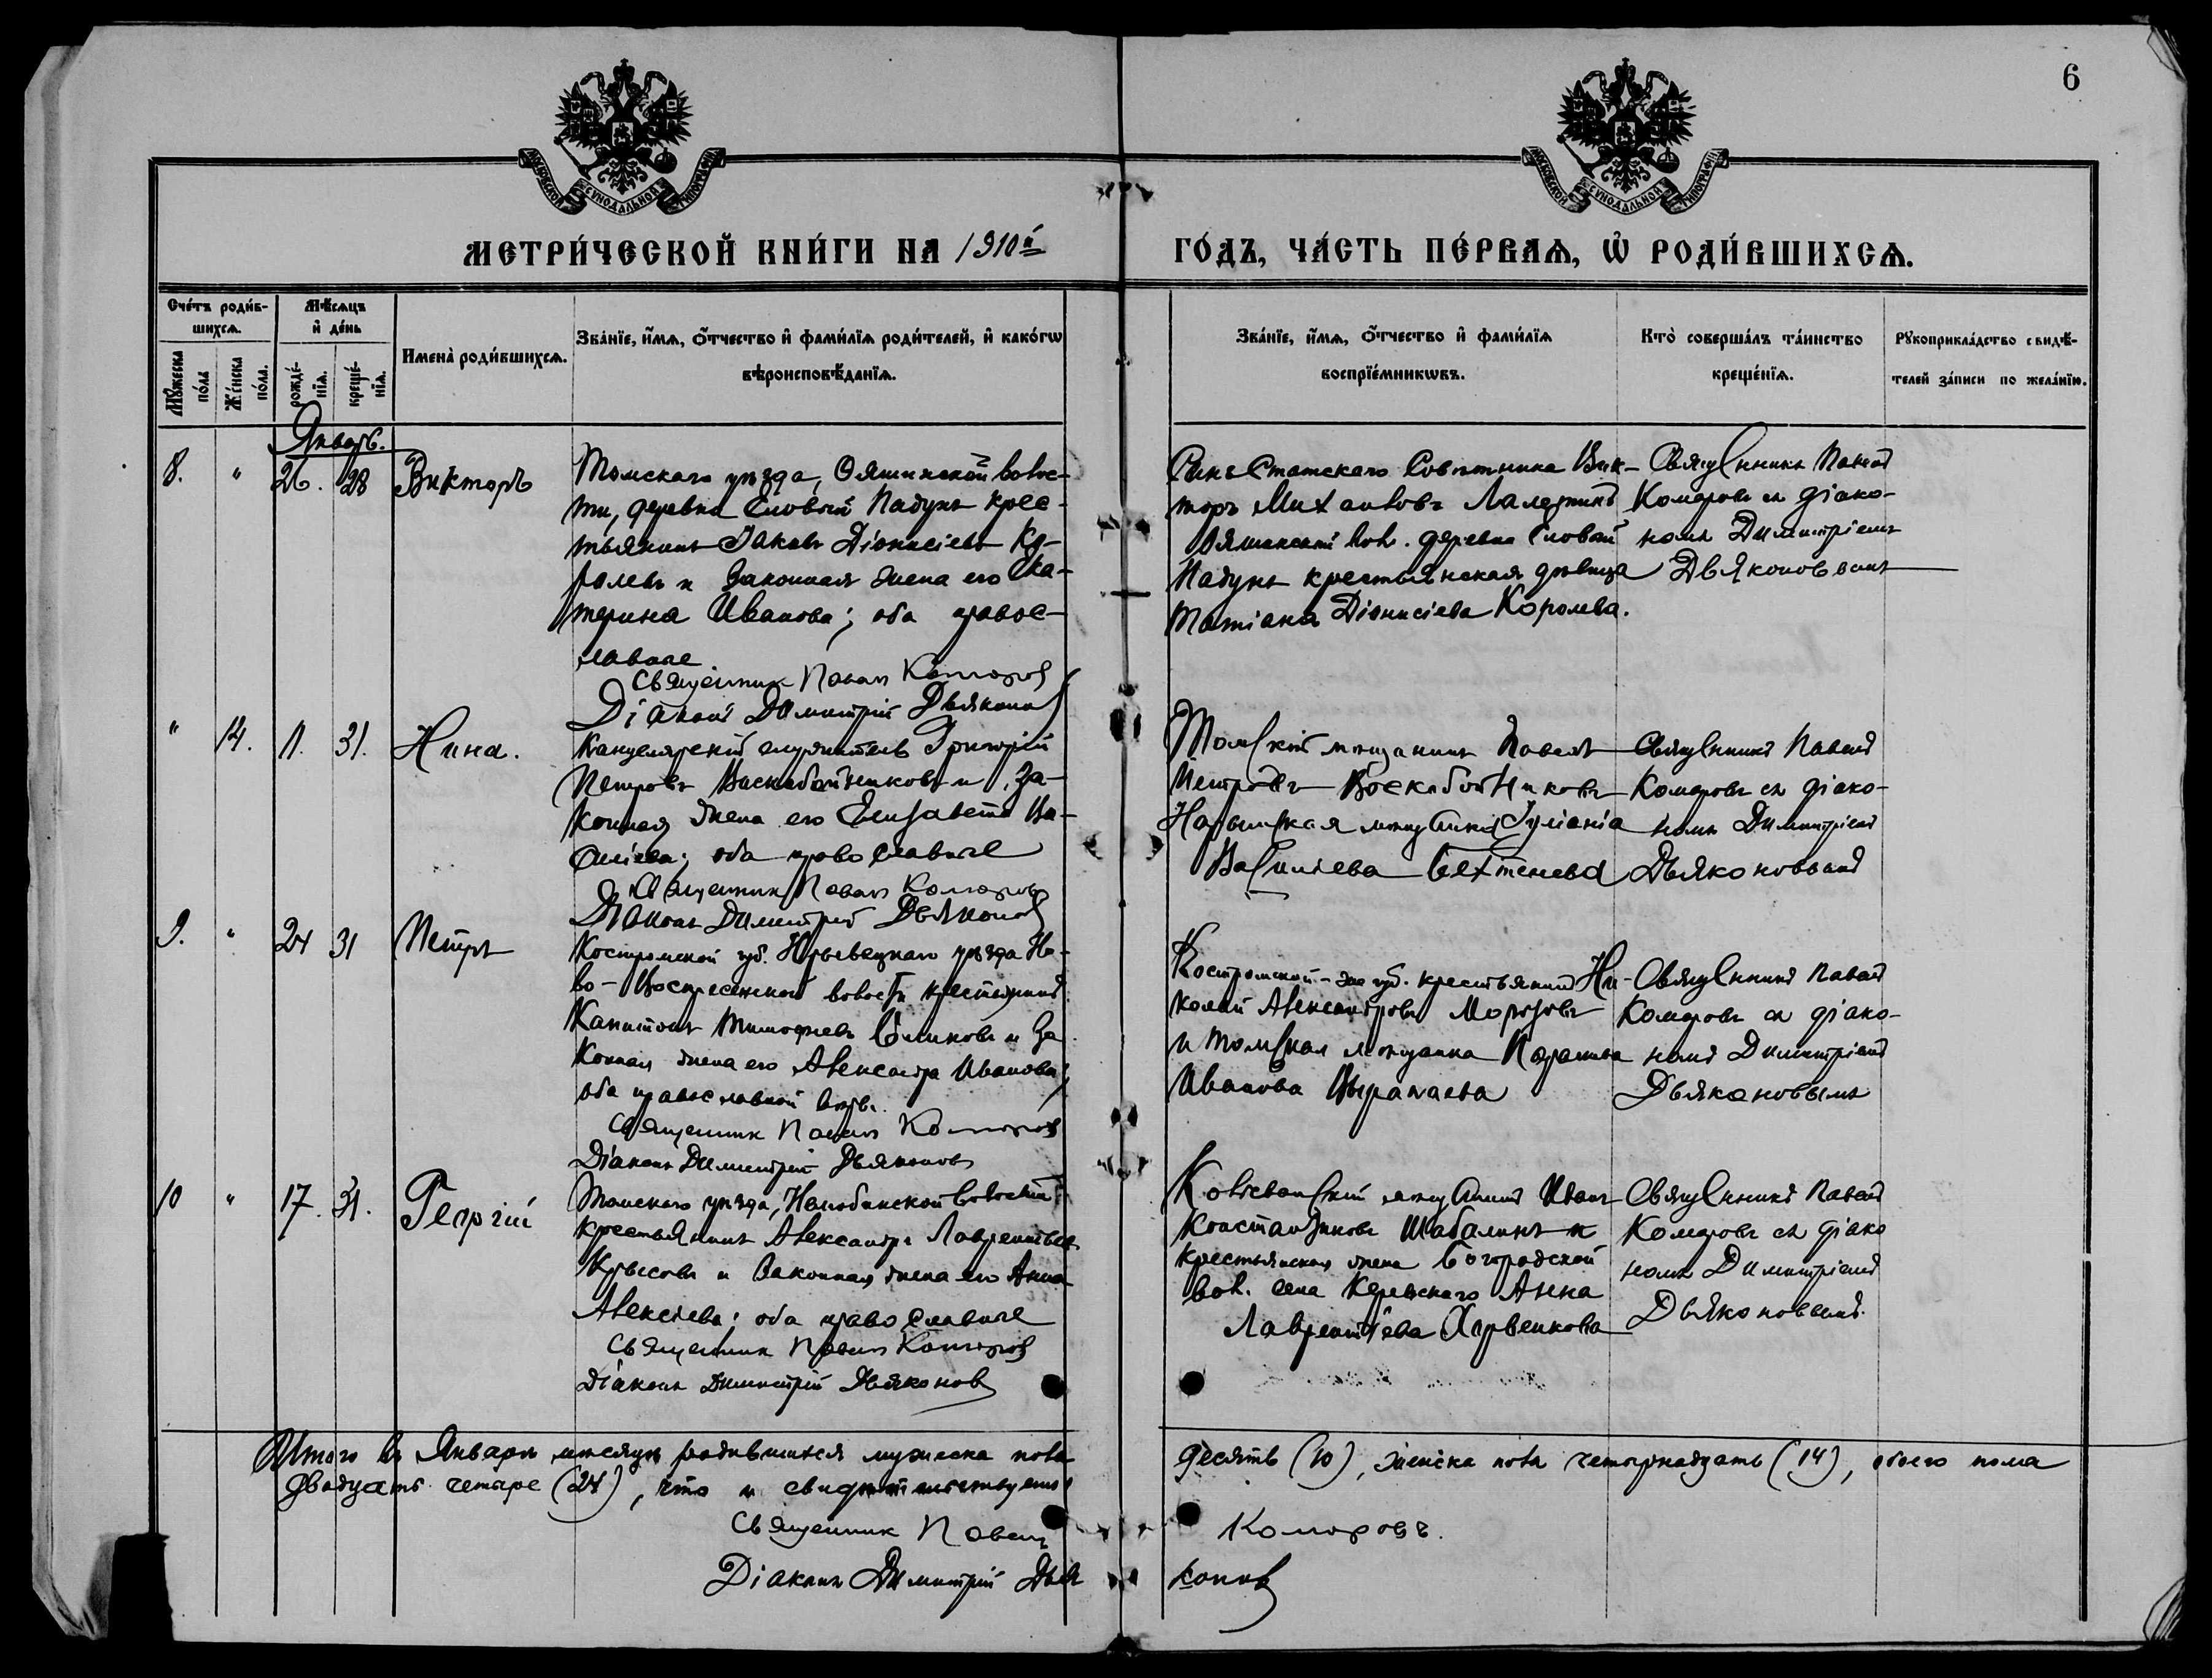 6
МОСКОВСКОЙ СУНОДАЛЬНОЙ ТИПОГРАФІИ
МОСКОВСКОЙ СУНОДАЛЬНОЙ ТИПОГРАФІИ
МЕТРИ́ЧЕСКОЙ КНИ́ГИ НА 1910й ГО́ДЪ, ЧА́СТЬ ПЕ́РВАѦ, Ѡ҆ РОДИ́ВШИХСѦ.
Сче́тъ роди́в-
шихсѧ.
Мꙋ́жеска по́ла
Же́нска по́ла.
Мѣ́сѧцъ
и҆ де́нь
рожде́-
нїѧ.
креще́-
нїѧ.
Имена̀ роди́вшихсѧ.
Зва́нїе, и҆́мѧ, ѻ҆́тчество и҆ фами́лїѧ роди́телей, и҆ како́гѡ
вѣроисповѣ́данїѧ.
Зва́нїе, и҆́мѧ, ѻ҆́тчество и҆ фами́лїѧ
воспрїе́мникѡвъ.
Кто̀ соверша́лъ та́инство
креще́нїѧ.
Рꙋкоприкла́дство свидѣ́-
телей за́писи по жела́нїю.
Январь.
8. " 26. 28 Викторъ
Томскаго уѣзда, Ояшинской волос-
ти, деревни Еловый Падунъ крес-
тьянинъ Іаковъ Діонисіевъ Ко-
ролевъ и законная жена его Ека-
терина Иванова; оба правос-
лавные
Священник Павел Комаров
Діаконъ Димитрій Дьяконов
Сынъ Статскаго Совѣтника Вик-
торъ Михаиловъ
Ояшинской вол. деревни Еловый
Падунъ крестьянская дѣвица
Татіана Діонисіева Королева.
Священникъ Павелъ
Комаровъ съ діако-
номъ Димитріемъ
Дьяконовымъ
" 14. 11. 31. Нина.
Канцелярскій служитель Григорій
Петровъ Воскобойниковъ и за-
конная жена его Елизавета Ва-
силіева; оба православные
Священник Павел Комаров
Діаконъ Димитрій Дьяконов
Томскій мѣщанинъ Павелъ
Петровъ Воскобойниковъ
Нарымская мѣщанка Іуліанія
Василіева
Священникъ Павелъ
Комаровъ съ діако-
номъ Димитріемъ
Дьяконовымъ
9. " 24 31 Петръ
Костромской губ. Юрьевецкаго уѣзда Но-
во-Воскресенской волости крестьянинъ
Капитонъ Тимофеевъ и за
конная жена его Александра Иванова;
оба православной вѣры.
Священник Павел Комаров
Діаконъ Димитрій Дьяконов
Костромской - же губ. крестьянинъ Ни-
колай Александровъ Морозовъ
и Томская мѣщанка
Иванова
Священникъ Павелъ
Комаровъ съ діако-
номъ Димитріемъ
Дьяконовымъ
10 " 17. 31. Георгій
Томскаго уѣзда, Нелюбинской волости
крестьянинъ Александръ Лаврентьев
и законная жена его Анна
Алексіева; оба православные
Священник Павел Комаров
Діаконъ Димитрій Дьяконов
Колыванскій мѣщанинъ Иванъ
Константиновъ Шабалинъ и
крестьянская жена Богородской
вол. села Анна
Лаврентіева
Священникъ Павелъ
Комаровъ съ діако
номъ Димитріемъ
Дьяконовымъ.
Итого въ Январѣ мѣсяцѣ родившихся мужеска пола десять (10), женска пола четырнадцать (14), обоего пола
двадцать четыре (24), что и свидѣтельствуемъ
Священник Павел Комаровъ.
Діаконъ Димитрій Дьяконов